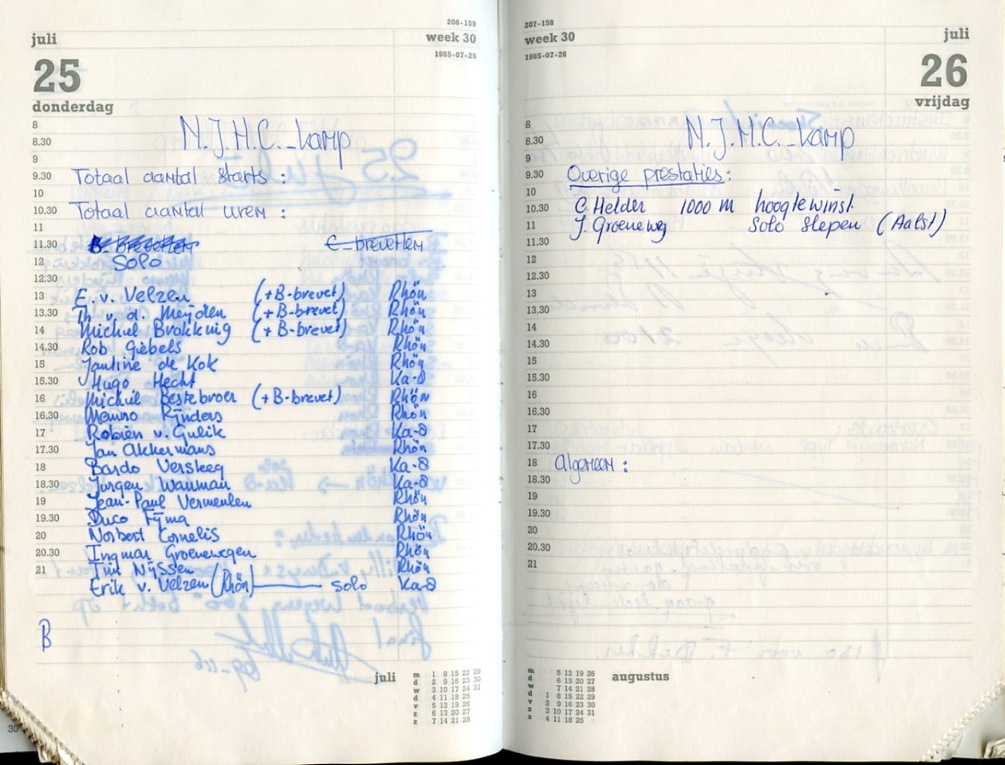 juli
206-159
week 30
1985-07-25
25
donderdag
N.J.H.C.-kamp
Totaal aantal starts :
Totaal aantal uren :
B-brevetten C-brevetten
Solo
E. v. Velzen (+B-brevet) Rhön
Th v. d. Meijden (+B-brevet) Rhön
Michiel Brokking (+B-brevet) Rhön
Rob Giebels Rhön
Jantine de Kok Rhön
Hugo Hecht Ka-8
Michiel Bestebroer (+B-brevet) Rhön
Menno Rijnders Rhön
Robien v. Gulik Ka-8
Jan Akkermans Rhön
Bardo Versteeg Ka-8
Jurgen Wanman Ka-8
Jean-Paul Vermeulen Rhön
Duco Fijma Rhön
Norbert Cornelis Rhön
Ingmar Groenewegen Rhön
Tim Nijssen Rhön
Erik v. Velzen (Rhön) solo Ka-8
B
8
8.30
9
9.30
10
10.30
11
11.30
12
12.30
13
13.30
14
14.30
15
15.30
16
16.30
17
17.30
18
18.30
19
19.30
20
20.30
21
30
juli
m 1 8 15 22 29
d 2 9 16 23 30
w 3 10 17 24 31
d 4 11 18 25
v 5 12 19 26
z 6 13 20 27
z 7 14 21 28
207-158
week 30
1985-07-26
juli
26
vrijdag
N.J.H.C.-kamp
Overige prestaties :
C. Helder 1000 m hoogtewinst
J. Groeneweg Solo slepen (Aalst)
Algemeen :
8
8.30
9
9.30
10
10.30
11
11.30
12
12.30
13
13.30
14
14.30
15
15.30
16
16.30
17
17.30
18
18.30
19
19.30
20
20.30
21
augustus
m 5 12 19 26
d 6 13 20 27
w 7 14 21 28
d 1 8 15 22 29
v 2 9 16 23 30
z 3 10 17 24 31
z 4 11 18 25